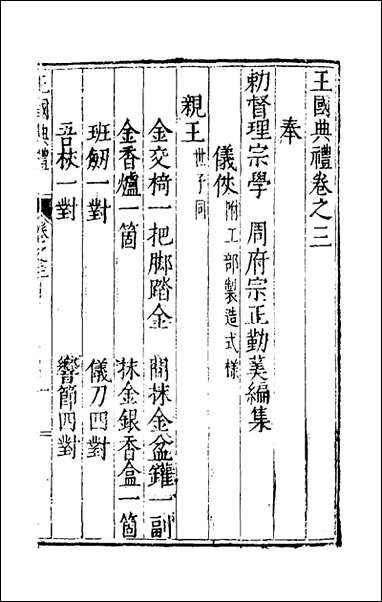 王國典禮卷之三
奉
勑督理宗學 周府宗正勤羙編集
儀仗附工部製造式樣
親王世子同
金交椅一把脚踏金 間抹金盆鑵一副
金香爐一箇 抹金銀香盒一箇
班劒一對 儀刀四對
吾杖一對 響節四對
王國典禮 卷之三